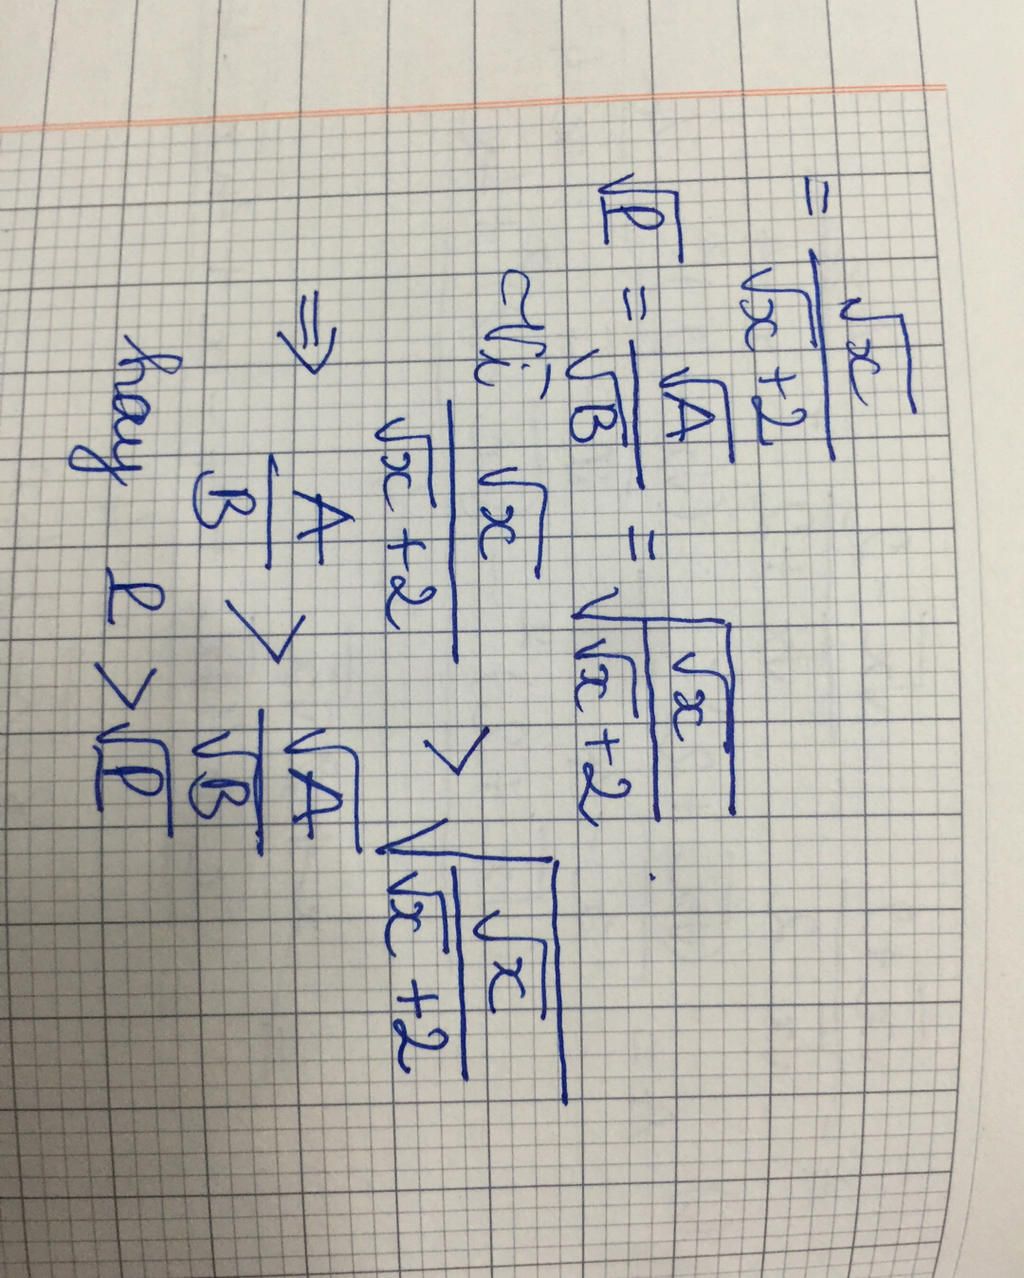 = √x / (√x + 2)
√P = √A / √B = √(√x / (√x + 2)) .
Vì √x / (√x + 2) > √(√x / (√x + 2))
⇒ A / B > √A / √B
hay P > √P